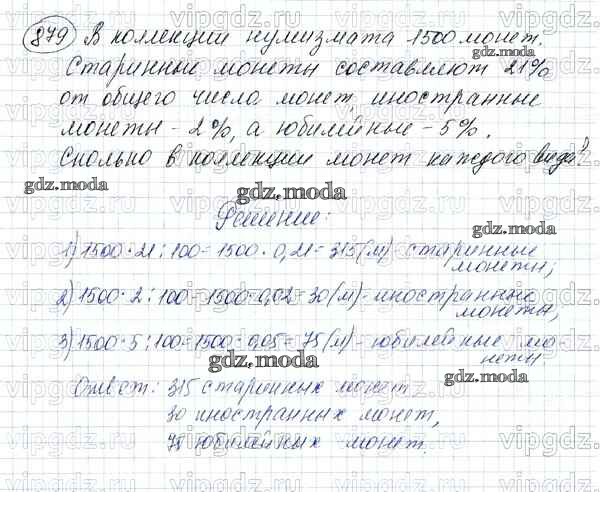 879 В коллекции нумизмата - 1500 монет.
Старинные монеты составляют 21%
от общего числа монет, иностранные
монеты - 2%, а юбилейные - 5%.
Сколько в коллекции монет каждого вида?
Решение:
1) 1500 · 21 : 100 = 1500 · 0,21 = 315 (м) - старинные
монеты;
2) 1500 · 2 : 100 = 1500 · 0,02 = 30 (м) - иностранные
монеты;
3) 1500 · 5 : 100 = 1500 · 0,05 = 75 (м) - юбилейные мо-
неты
Ответ: 315 старинных монет,
30 иностранных монет,
75 юбилейных монет.
gdz.moda
gdz.moda
gdz.moda
gdz.moda
gdz.moda
gdz.moda
gdz.moda
vipgdz.ru